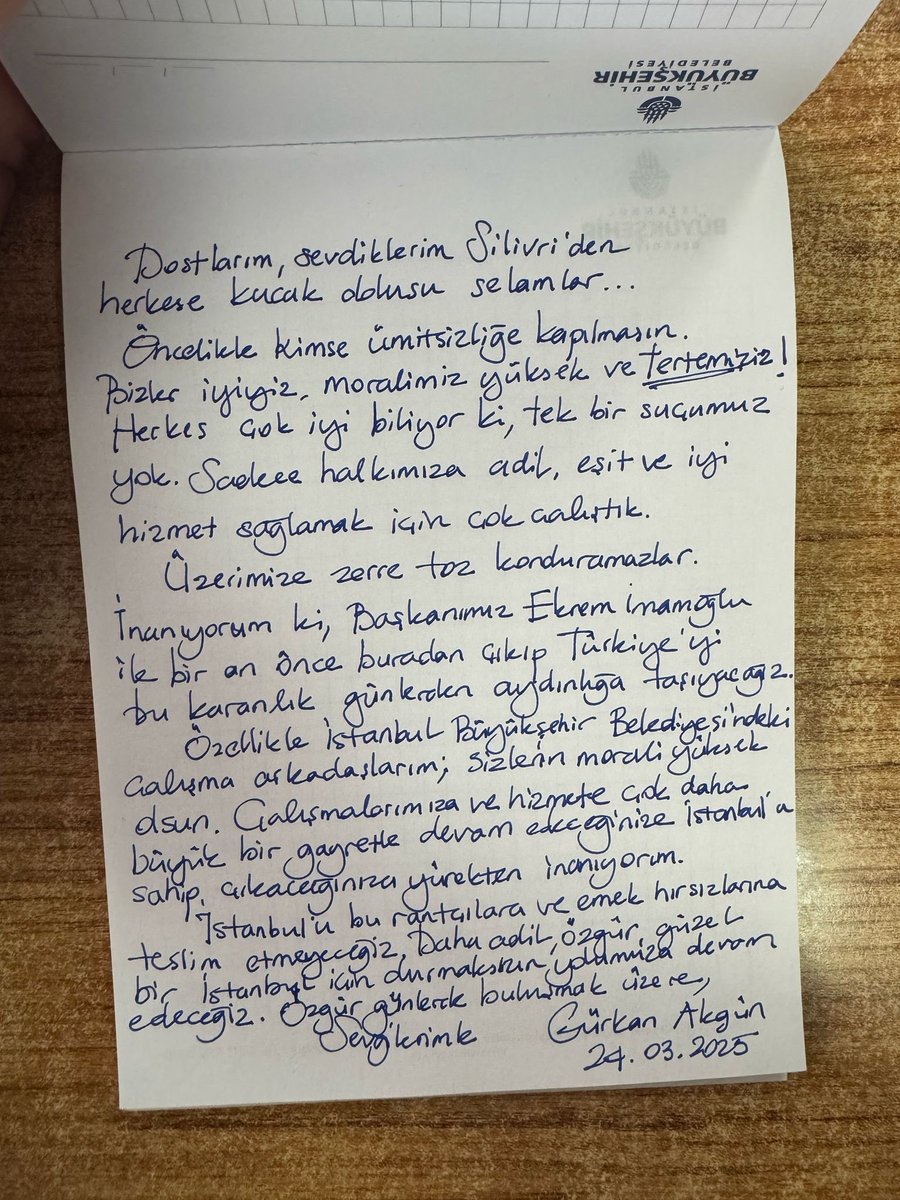 İSTANBUL
BÜYÜKŞEHİR
BELEDİYESİ
Dostlarım, sevdiklerim Silivri'den
herkese kucak dolusu selamlar...
Öncelikle kimse ümitsizliğe kapılmasın.
Bizler iyiyiz, moralimiz yüksek ve tertemiziz!
Herkes çok iyi biliyor ki, tek bir suçumuz
yok. Sadece halkımıza adil, eşit ve iyi
hizmet sağlamak için çok çalıştık.
Üzerimize zerre toz konduramazlar.
İnanıyorum ki, Başkanımız Ekrem İmamoğlu
ile bir an önce buradan çıkıp Türkiye'yi
bu karanlık günlerden aydınlığa taşıyacağız.
Özellikle İstanbul Büyükşehir Belediyesi'ndeki
çalışma arkadaşlarım; sizlerin morali yüksek
olsun. Çalışmalarımıza ve hizmete çok daha
büyük bir gayretle devam edeceğinize İstanbul'a
sahip çıkacağınıza yürekten inanıyorum.
İstanbul'u bu rantçılara ve emek hırsızlarına
teslim etmeyeceğiz. Daha adil, özgür, güzel
bir İstanbul için durmaksızın yolumuza devam
edeceğiz. Özgür günlerde buluşmak üzere,
Sevgilerimle Gürkan Akgün
24.03.2025